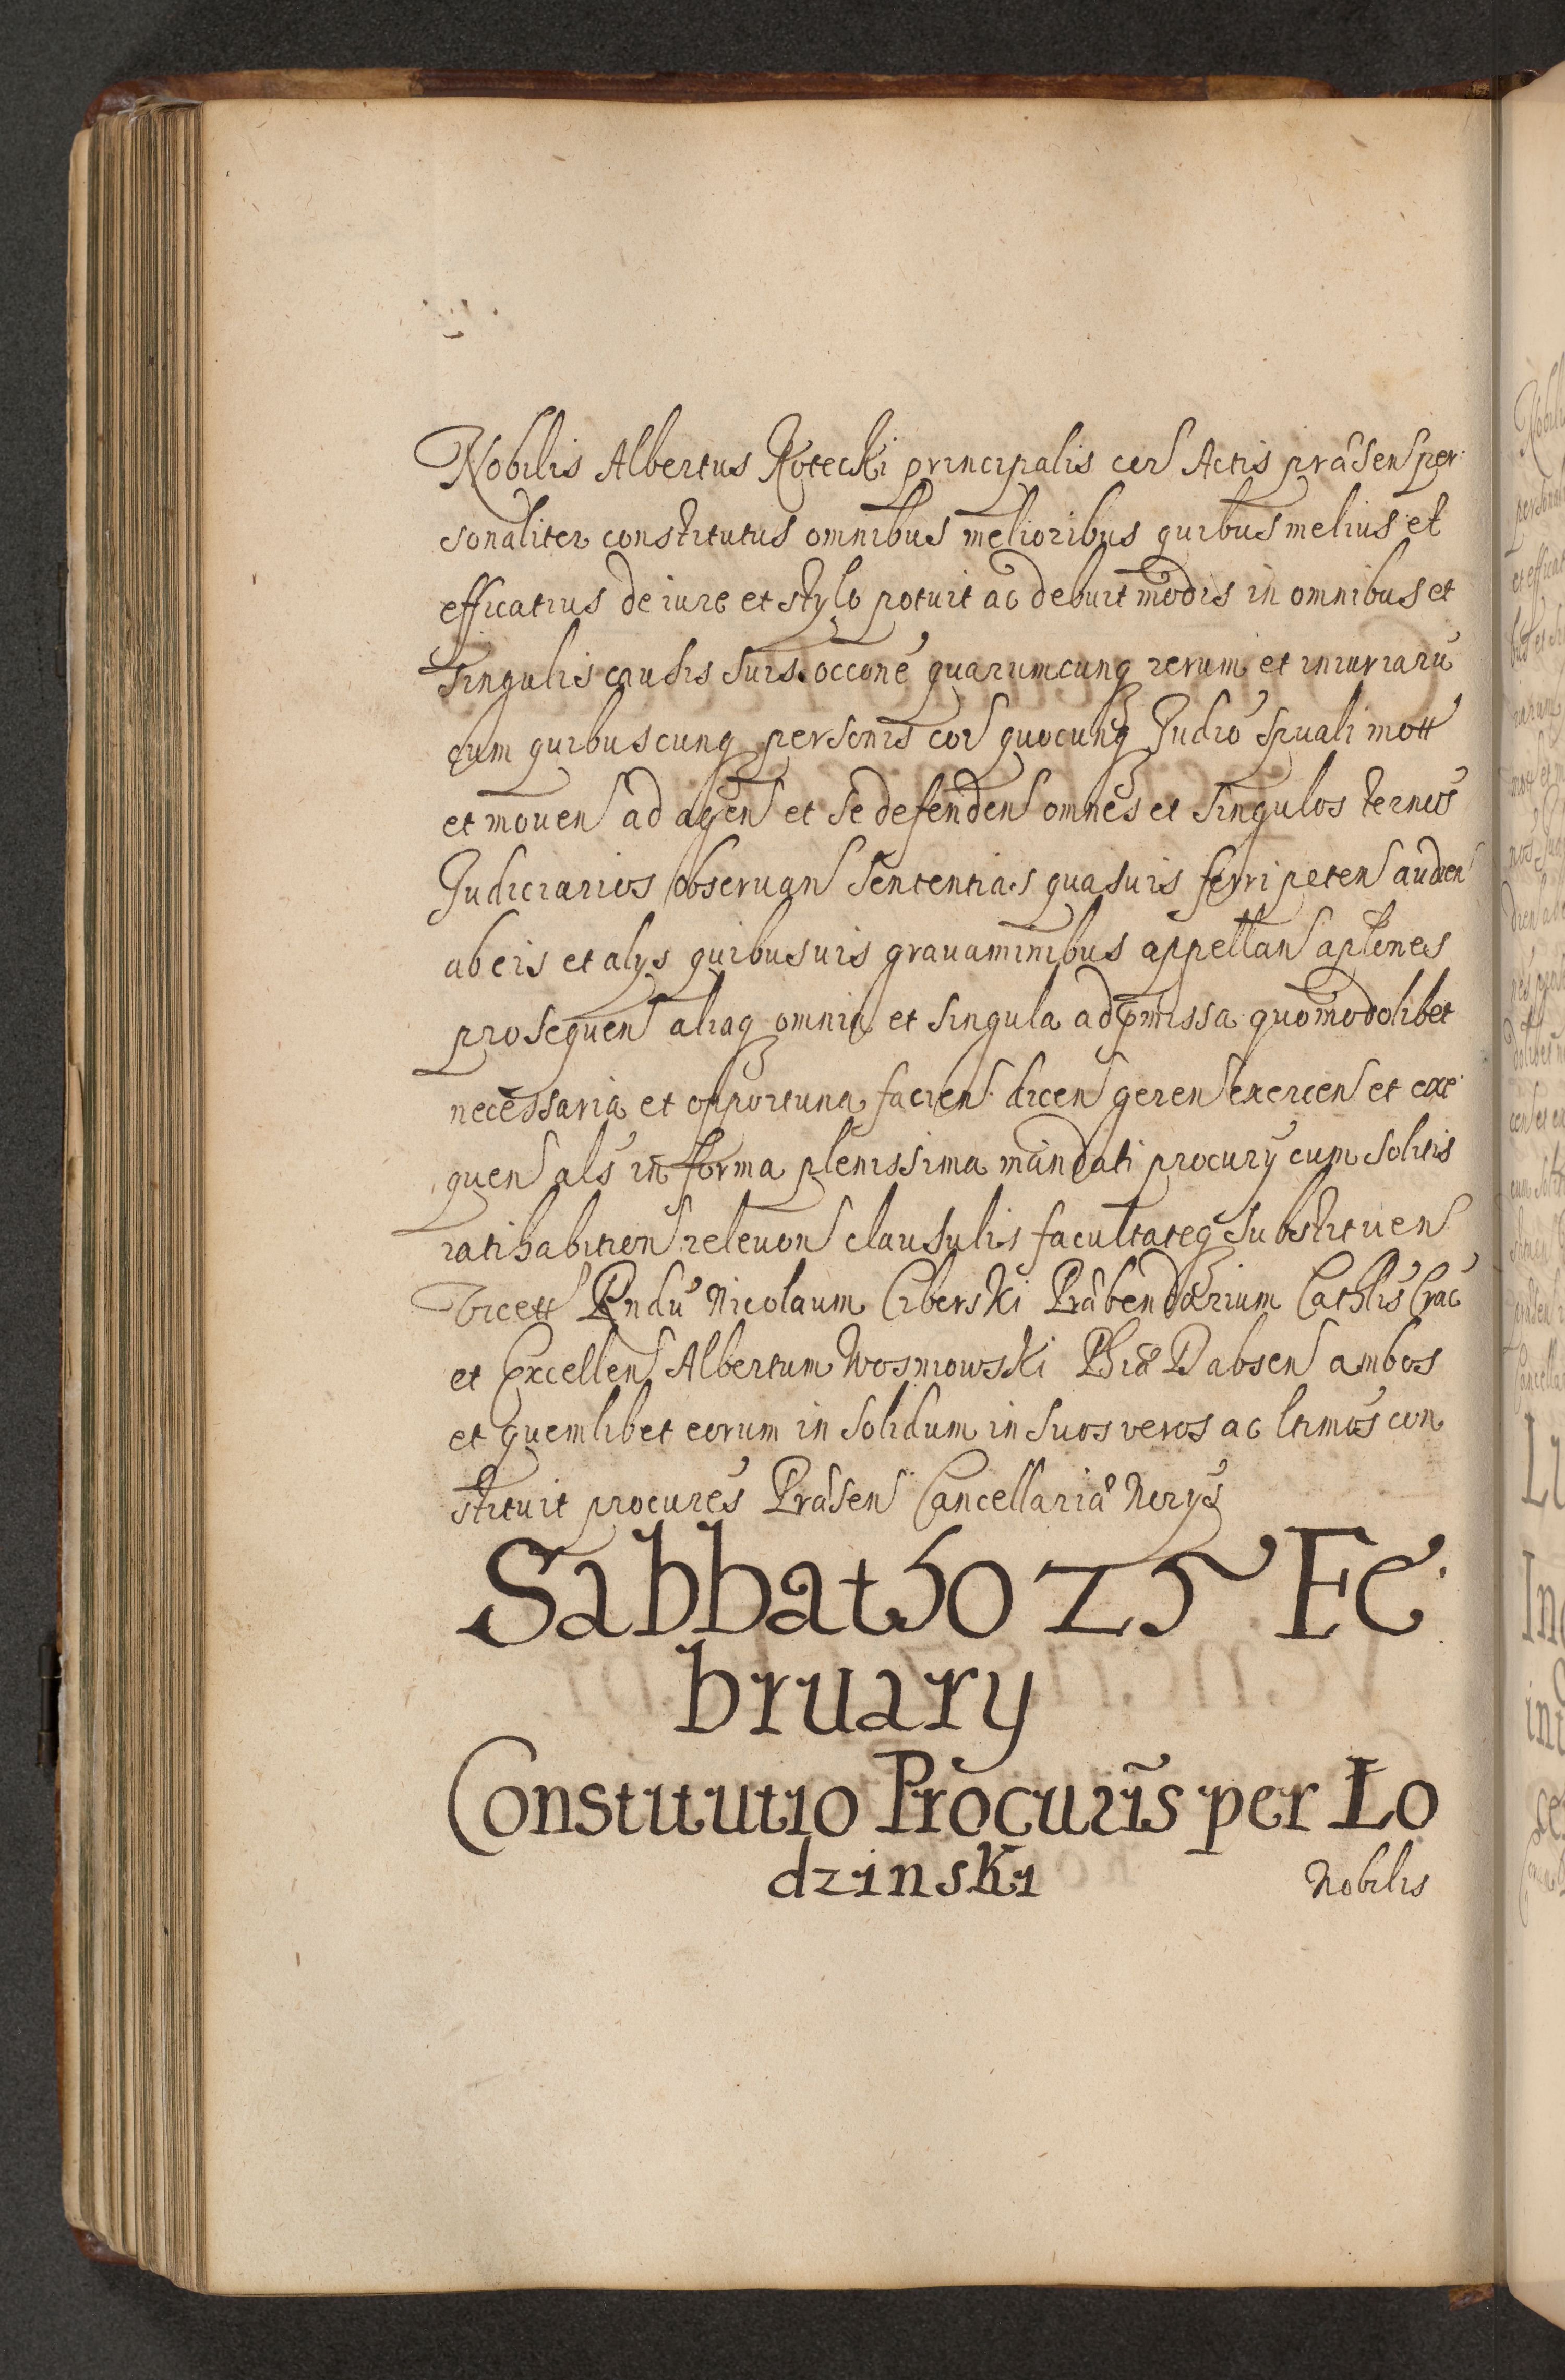 Nobilis Albertus Kotecki principalis cor Actis præsen per
sonaliter constitutus omnibus melioribus quibus melius et
efficatius de iure et stylo potuit ac debuit modis in omnibus et
singulis causis suis occone quarumcunq rerum et iniuriaru
cum quibuscunq personis cor quocunq Judio spuali mott
et mouen ad agen et se defenden omnes et singulos ternos
Judiciarios obseruan sententias quasuis ferri peten audien
ab eis et alys quibusuis grauaminibus appellan aplones
prosequen aliaq omnia et singula ad pmissa quomodolibet
necessaria et opportuna facien dicen geren exercen et exe
quen als in forma plenissima mandati procury cum solitis
ratihabition releuon clausulis facultateq substituen
Vicett Rndu Nicolaum Ciberski Præbendarium Cathlis Crac
et Excellen Albertum Wosniowski Phiæ D absen ambos
et quemlibet eorum in solidum in suos veros ac ltimos con
stituit procures Præsen Cancellariæ Norys
Sabbatho 25 Fe
bruary
Constitutio Procuris per Lo
dzinski
Nobilis